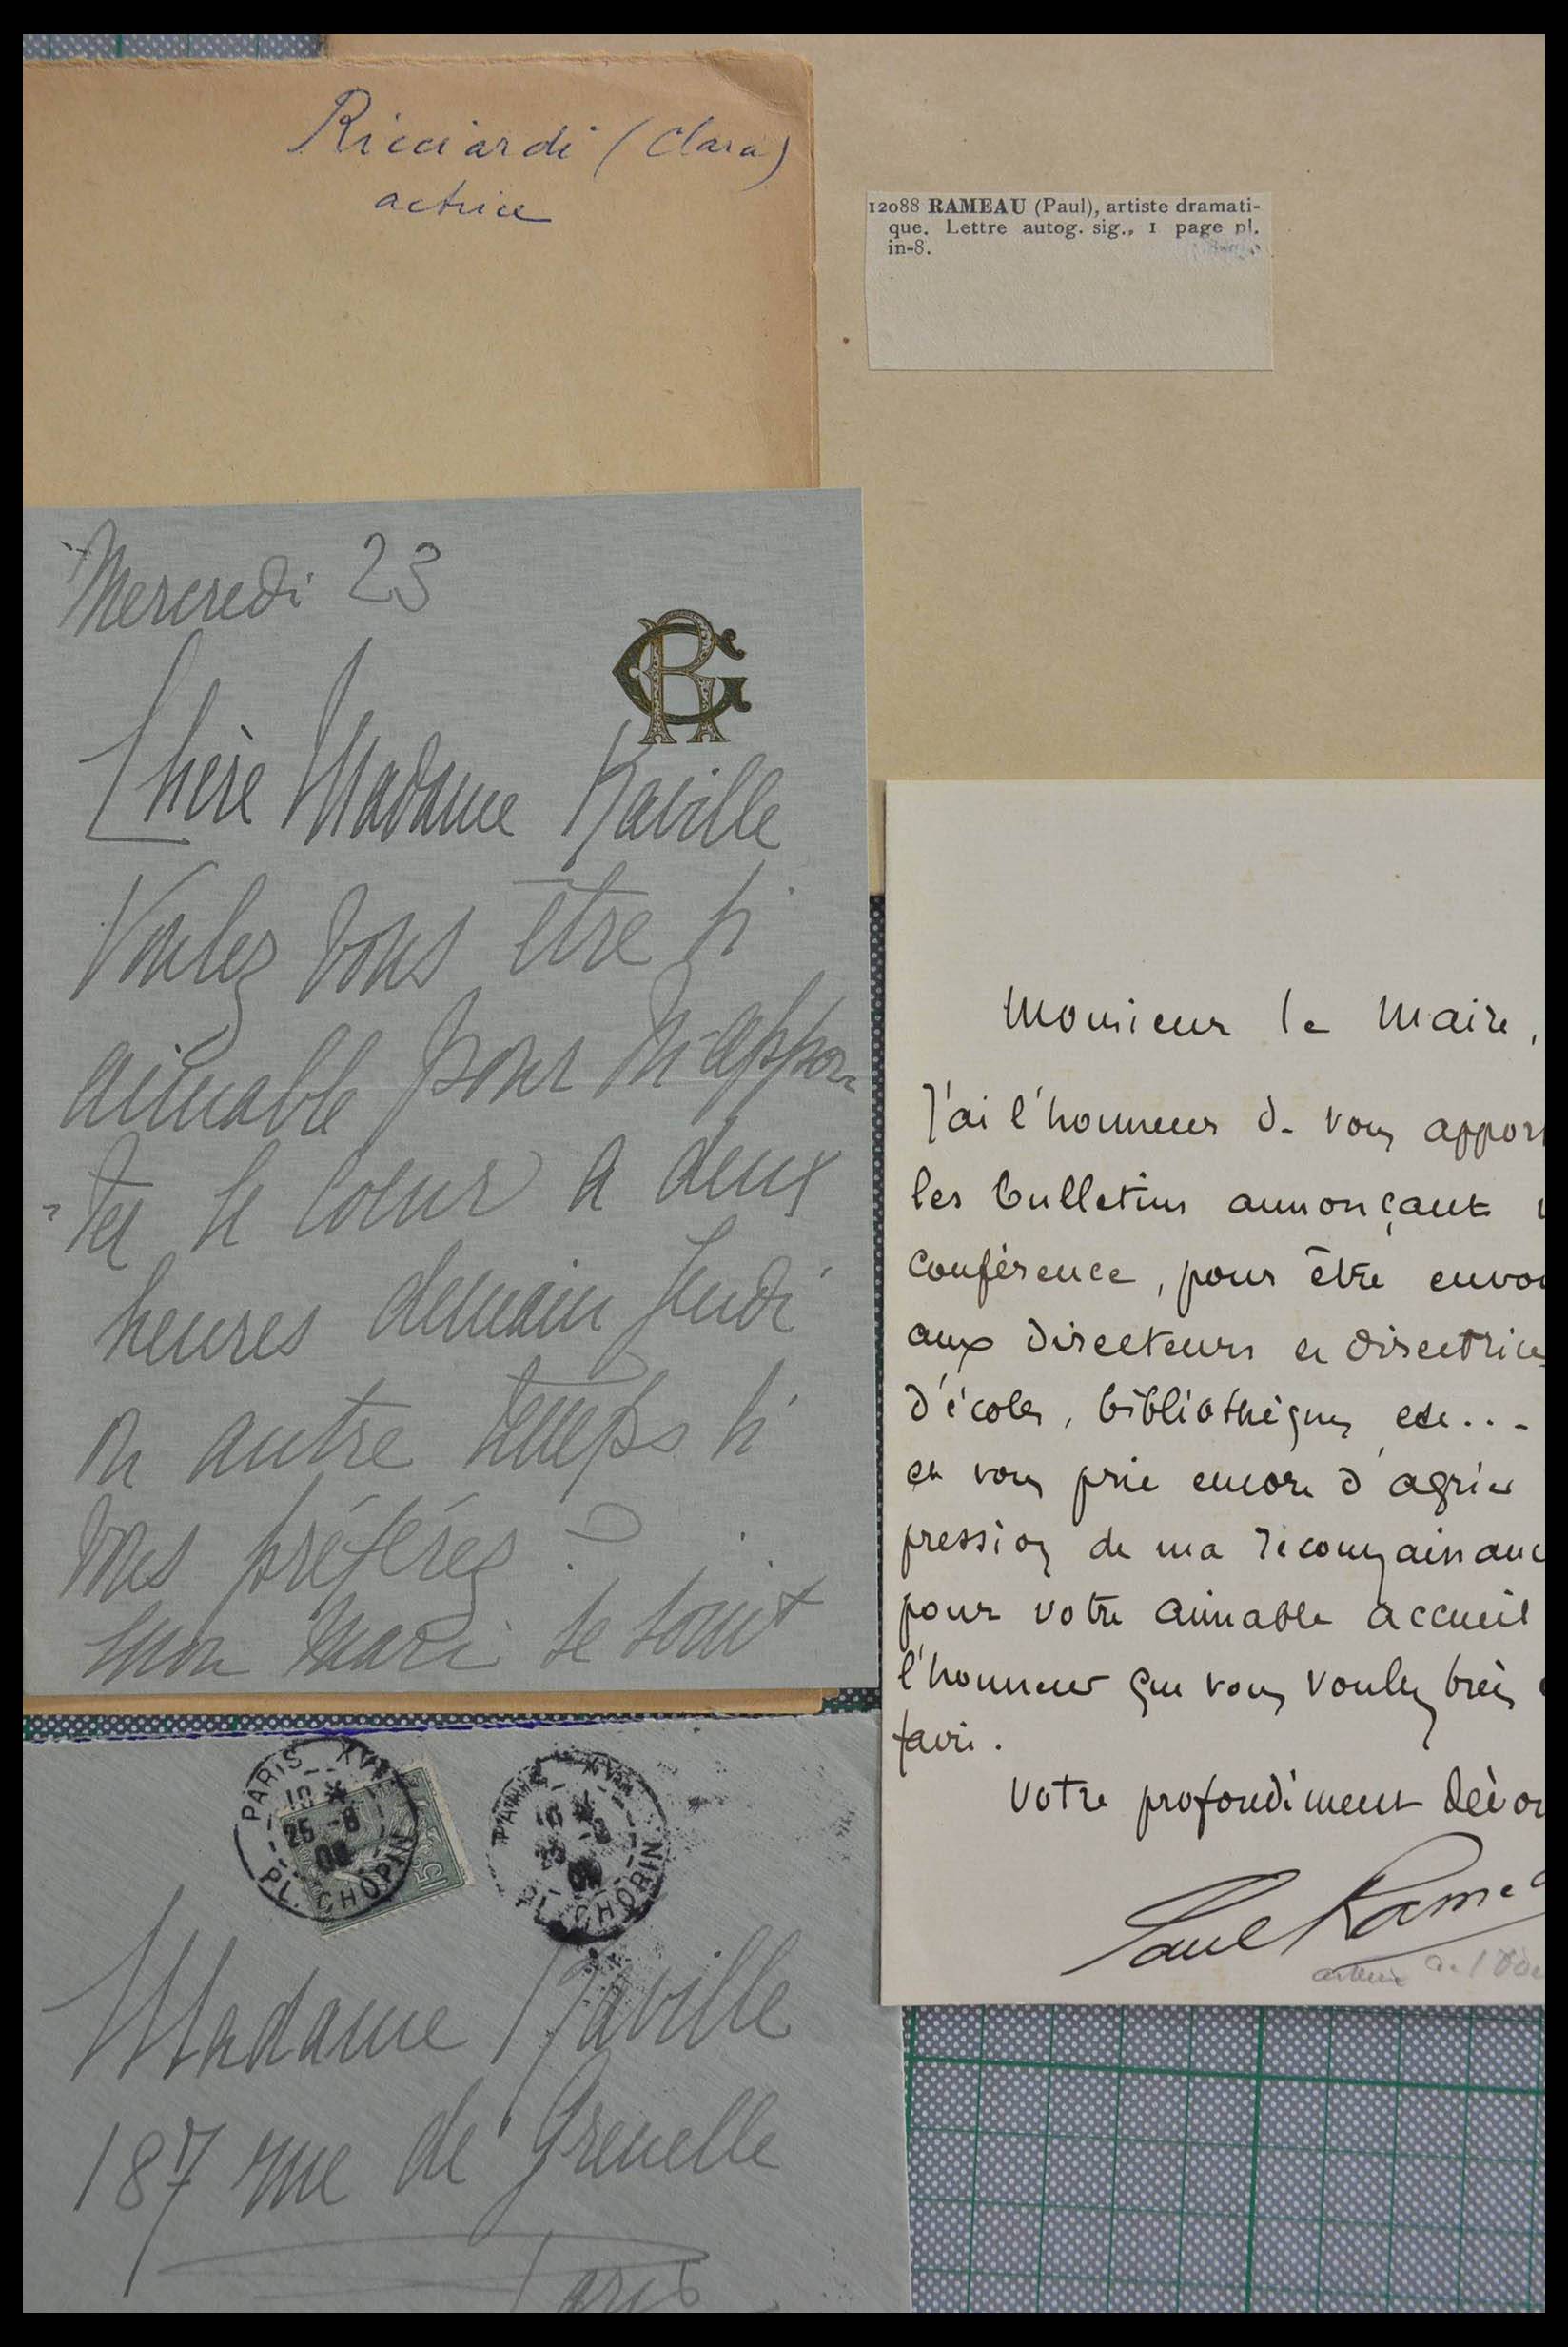 Ricciardi (Clara)
actrice
12088 RAMEAU (Paul), artiste dramati-
que. Lettre autog. sig., 1 page pl.
in-8.
Mercredi 23
Chère Madame Raville
Voulez vous être si
aimable pour m'appor-
-ter le coeur a deux
heures demain Jeudi
ou autre temps si
vous préférez ?
mon mari se
Monsieur le Maire,
J'ai l'honneur de vous appor
les bulletins annonçant
conférence, pour être envo
aux directeurs et directrice
d'écoles, bibliothèques, etc...
et vous prie encore d'agréer
pression de ma reconnaissanc
pour votre aimable accueil
l'honneur que vous voulez bien
faire.
Votre profondément dévou
Paul Rame
artiste de l'Odé
PARIS XVI
10
25 -8
09
PL. CHOPIN
15c
PARIS XVI
10
PL. CHOPIN
Madame Raville
187 rue de Grenelle
Paris